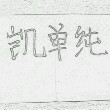 凯单纯